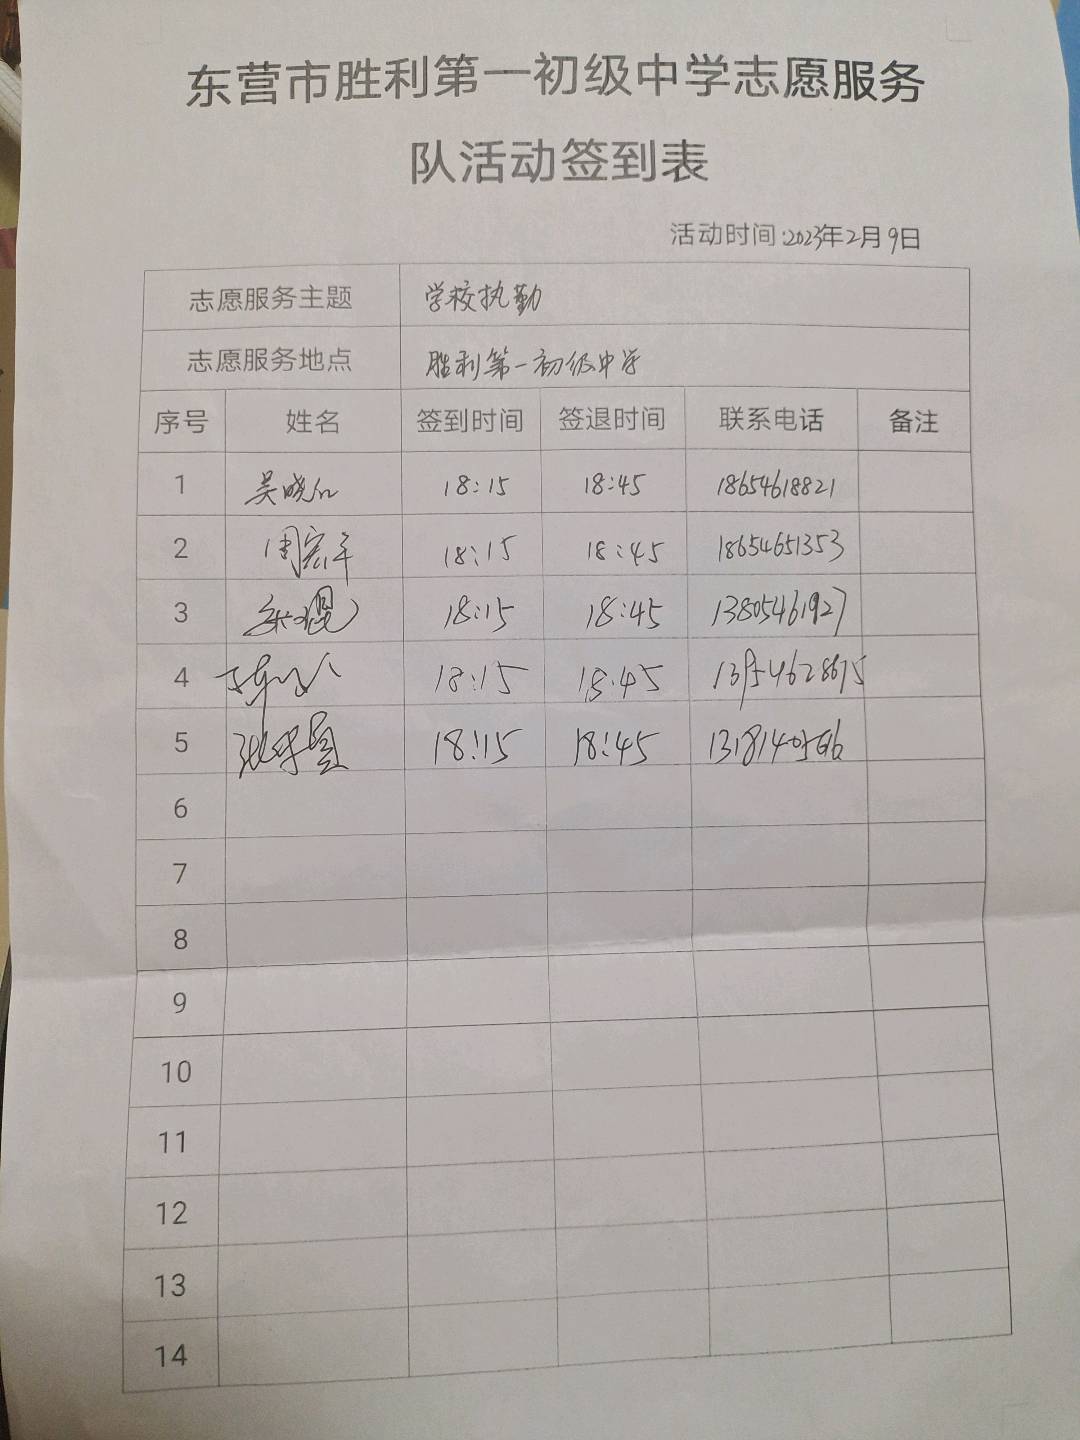 东营市胜利第一初级中学志愿服务
队活动签到表
活动时间:2023年2月9日
志愿服务主题 学校执勤
志愿服务地点 胜利第一初级中学
序号 姓名 签到时间 签退时间 联系电话 备注
1 吴晓 18:15 18:45 18654618821
2 周宏年 18:15 18:45 18654651353
3 18:15 18:45 13805461927
4 18:15 18:45
5 18:15 18:45
6
7
8
9
10
11
12
13
14